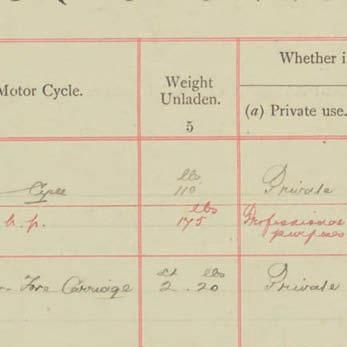 Whether i
Motor Cycle.
Weight
Unladen.
5
(a) Private use.
lbs
Cycle 110 Private
h.p.
lbs
175
Professional
purposes
Fore Carriage
ct lbs
2 . 20
Private